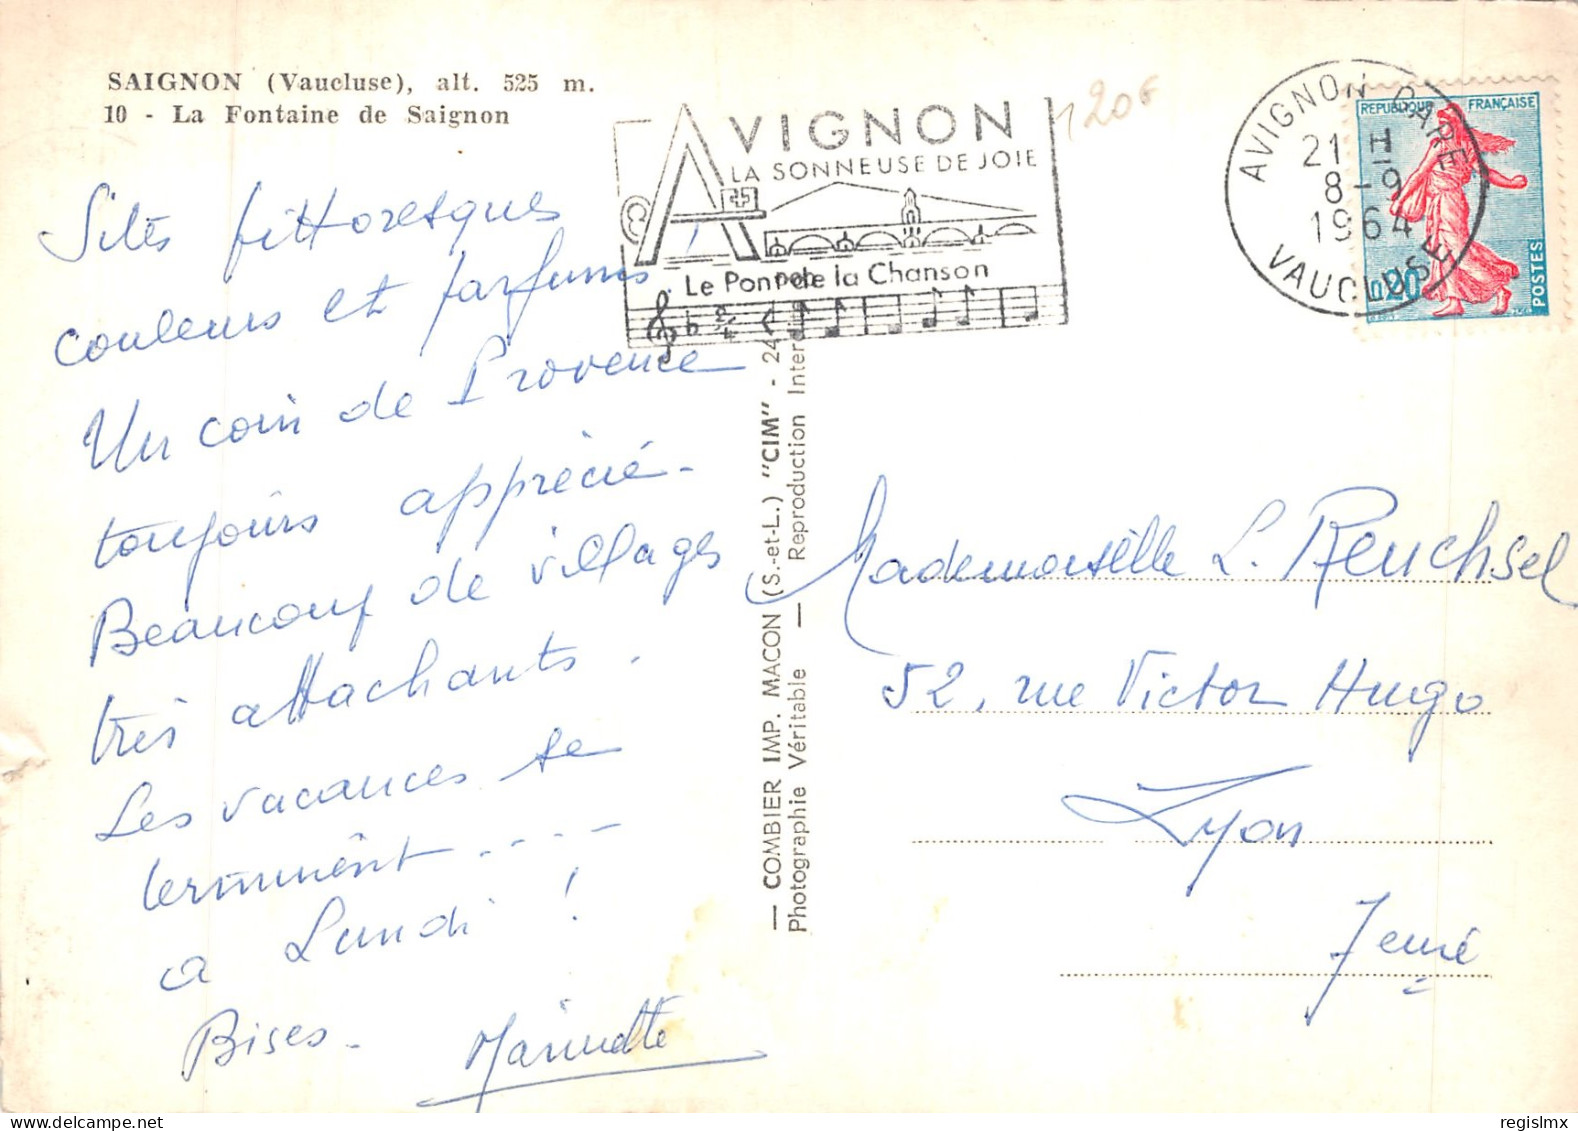 SAIGNON (Vaucluse), alt. 525 m.
10 - La Fontaine de Saignon
120F
AVIGNON
LA SONNEUSE DE JOIE
Le Pont de la Chanson
AVIGNON GARE
21 H
8-9
1964
VAUCLUSE
REPUBLIQUE FRANÇAISE
0,20
POSTES
Sites pittoresques
couleurs et parfums
Un coin de Provence
toujours apprécié -
Beaucoup de villages
très attachants.
Les vacances se
terminent ----
a Lundi !
Bises -
Marinette
— COMBIER IMP. MACON (S.-et-L.) "CIM" - 24
Photographie Véritable — Reproduction Inter
Mademoiselle L. Reuchsel
52, rue Victor Hugo
Lyon
2emé
regislmx
delcampe.net